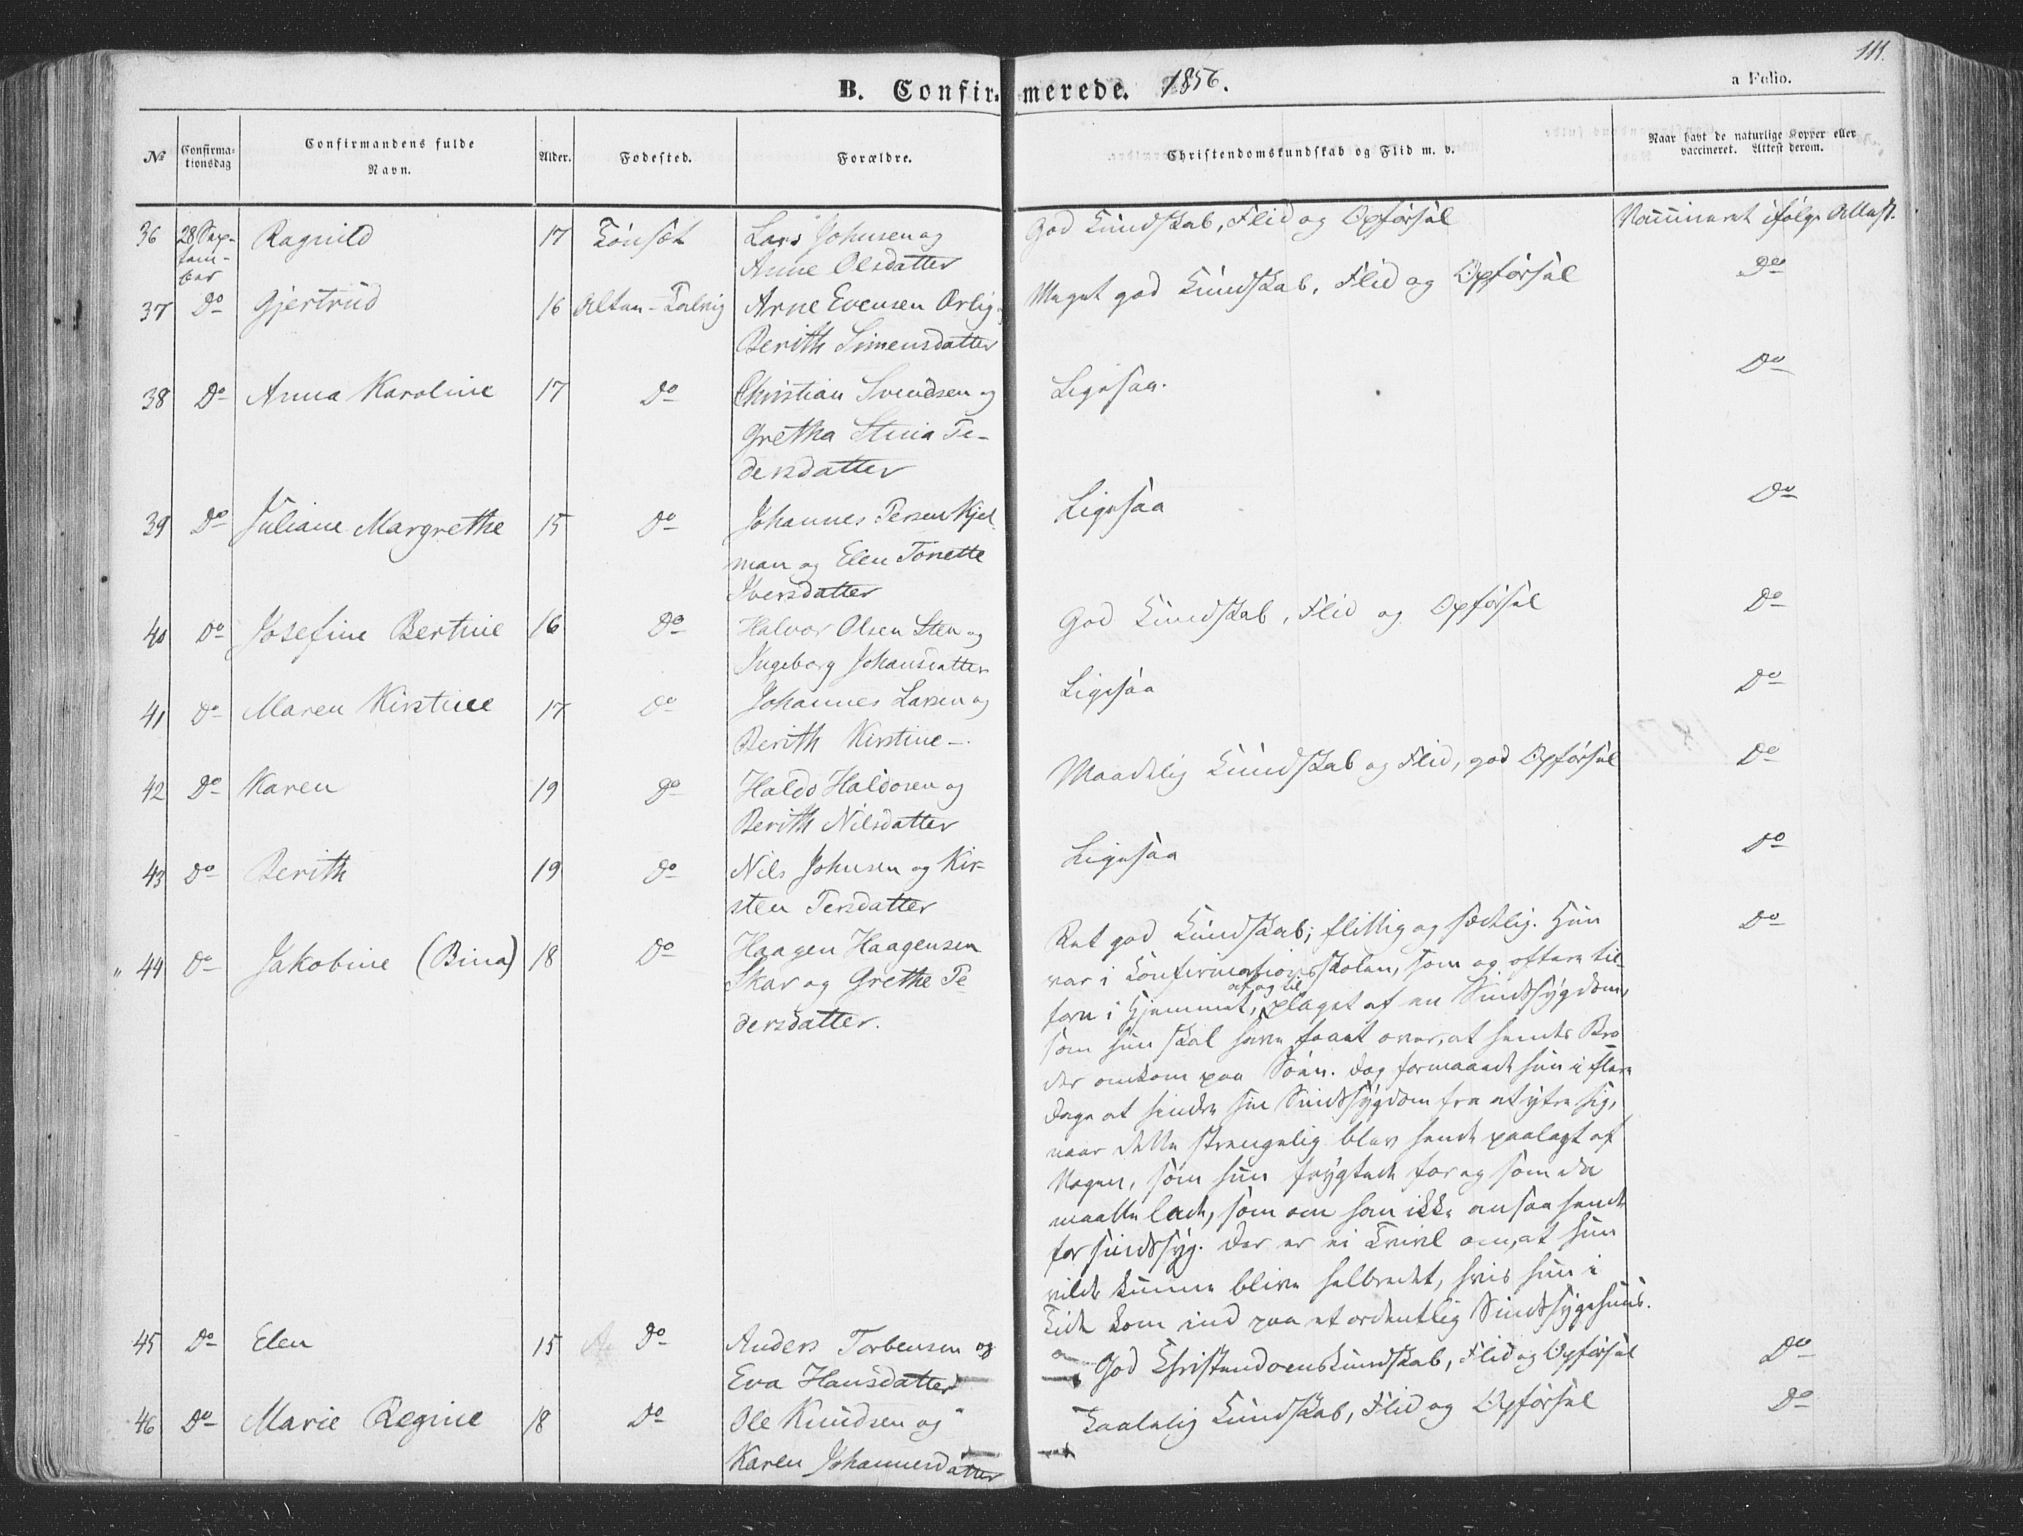 111.
B. Confirmerede. 1856.
a Folio.
№ Confirmationsdag Confirmandens fulde Navn. Alder. Fodested. Forældre. Christendomskundskab og Flid m. v. Naar havt de naturlige Kopper eller vaccineret. Attest derom.
36 28 Sep- Ragnild 17 Kônsæt Lars Johnsen og God Kundskab, Flid og Opførsel Vaccineret ifølge Attest.
tem-
ber Anne Olsdatter
37 Do Gjertrud 16 Alten-Talvig Arne Evensen Ørlig Meget god Kundskab, Flid og Opførsel Do
Berith Simensdatter
38 Do Anna Karoline 17 Do Christian Svendsen og Ligesaa. Do
Gretha Stina Pe-
dersdatter
39 Do Juliane Margrethe 15 Do Johannes Persen Kjel- Ligesaa Do
man og Elen Tonette
Iversdatter
40 Do Josefine Bertine 16 Do Halvor Olsen Sten og God Kundskab, Flid og Opførsel Do
Ingeborg Johansdatter
41 Do Maren Kirstine 17 Do Johannes Larsen og Ligesaa Do
Berith Kirstine -.
42 Do Karen 19 Do Haldo Haldosen og Maadelig Kundskab og Flid, god Opførsel Do
Berith Nilsdatter
43 Do Berith 19 Do Nils Johnsen og Kir- Ligesaa Do
sten Persdatter
44 Do Jakobine (Bina) 18 Do Haagen Haagensen Ret god Kundskab; flittig og sædelig. Hun Do
Skar og Grethe Pe- var i Konfirmationsskolen, som og oftere til-
dersdatter. forn i Hjemmet, af og til plaget af en Sindssygdom,
som hun skal have faaet over, at hendes Bro
der omkom paa Søen. Dog formaaede hun i flere
Dage at hindre sin Sindssygdom fra at ytre sig,
naar dette strengelig blev hende paalagt af
Nogen, som hun frygtede for og som da
maatte lade, som om han ikke ansaa hende
for sindssyg. Der er ei Tvivl om, at hun
vilde kunne blive helbredet, hvis hun i
Tide kom ind paa et ordentlig Sindssygehuus.
45 Do Elen 15 Do Anders Torbensen og God Christendomskundskab, Flid og Opførsel Do
Eva Hansdatter
46 Do Marie Regine 18 Do Ole Knudsen og Taalelig Kundskab, Flid og Opførsel Do
Karen Johannesdatter